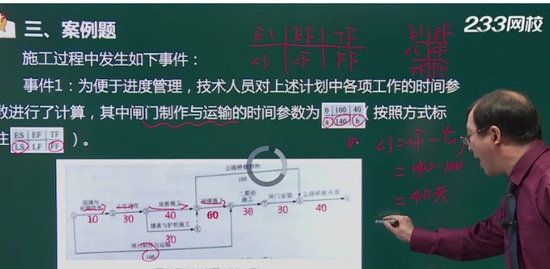 三、案例题
233网校
施工过程中发生如下事件：
ES EF TF
LS LF FF
ES EF
LS LF
TF FF
事件1：为便于进度管理，技术人员对上述计划中各项工作的时间参
数进行了计算，其中闸门制作与运输的时间参数为 0 100 40
a 140 b （按照方式标
注 ES EF TF
LS LF FF ）。
LS=LF-t
=140-100
=40天
公路桥预制
100
底板施工
二期砼
施工
闸门安装
公路桥吊装
10 30 40 60 30 30 40
铺盖与护坦施工
30
闸门制作与运输
100